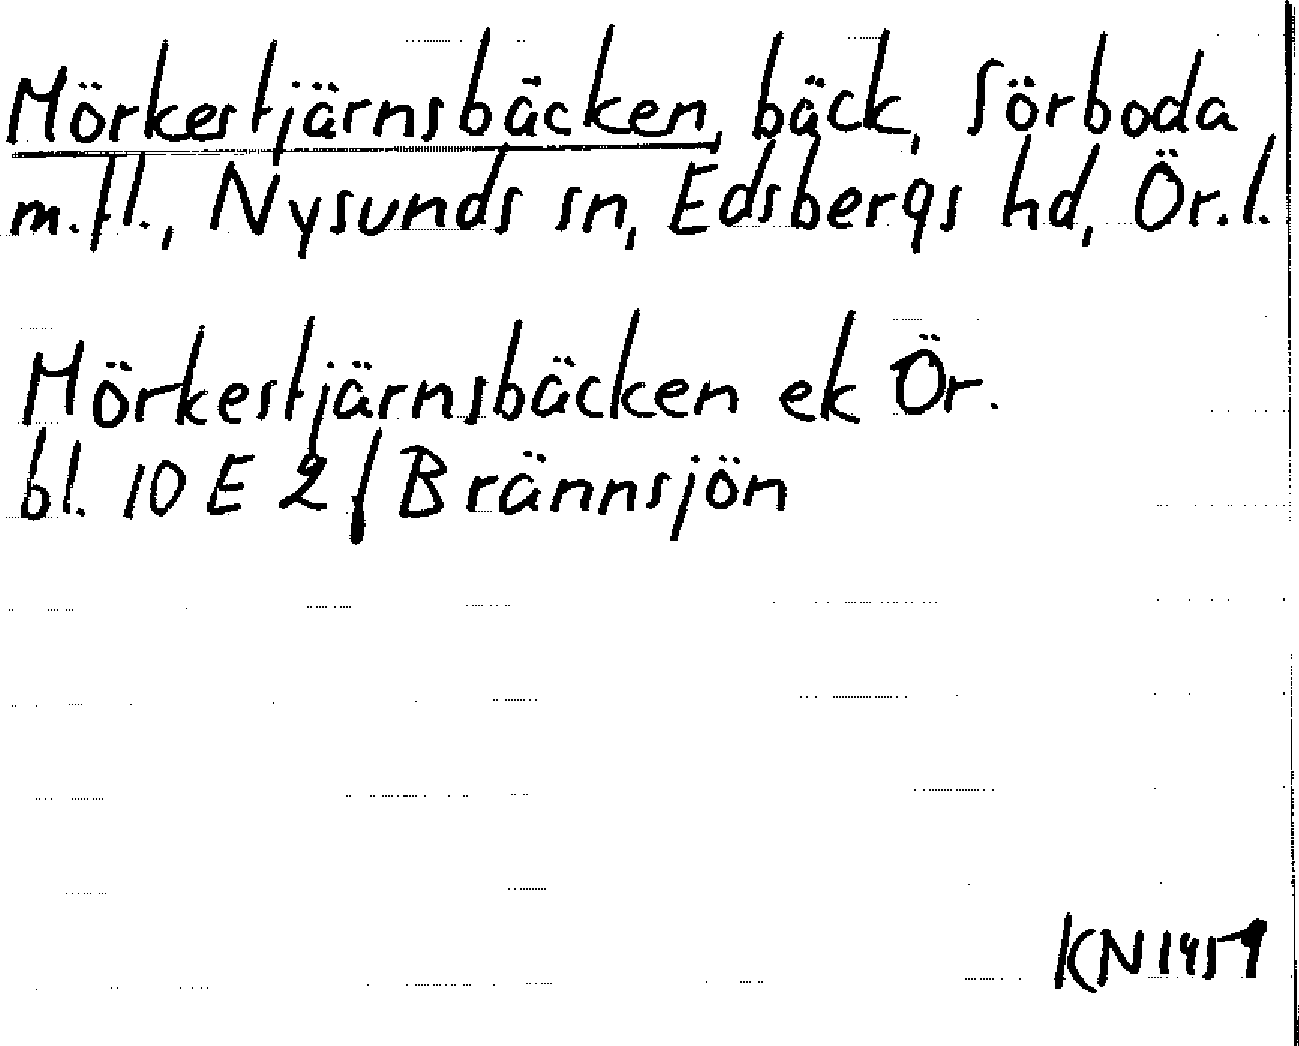 Mörkestjärnsbäcken, bäck, Sörboda
m.fl., Nysunds sn, Edsbergs hd, Ör.l.
Mörkestjärnsbäcken ek Ör.
bl. 10 E 2f Brännsjön